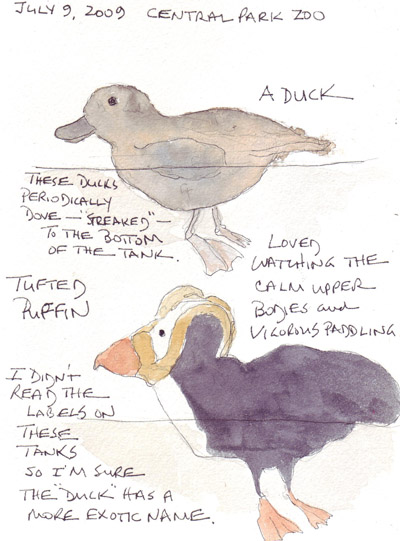 JULY 9, 2009 CENTRAL PARK ZOO
A DUCK
THESE DUCKS
PERIODICALLY
DOVE — "STREAKED" —
TO THE BOTTOM
OF THE TANK.
LOVED
WATCHING THE
CALM UPPER
BODIES and
VIGOROUS PADDLING
TUFTED
PUFFIN
I DIDN'T
READ THE
LABELS ON
THESE
TANKS
SO I'M SURE
THE "DUCK" HAS A
MORE EXOTIC NAME.